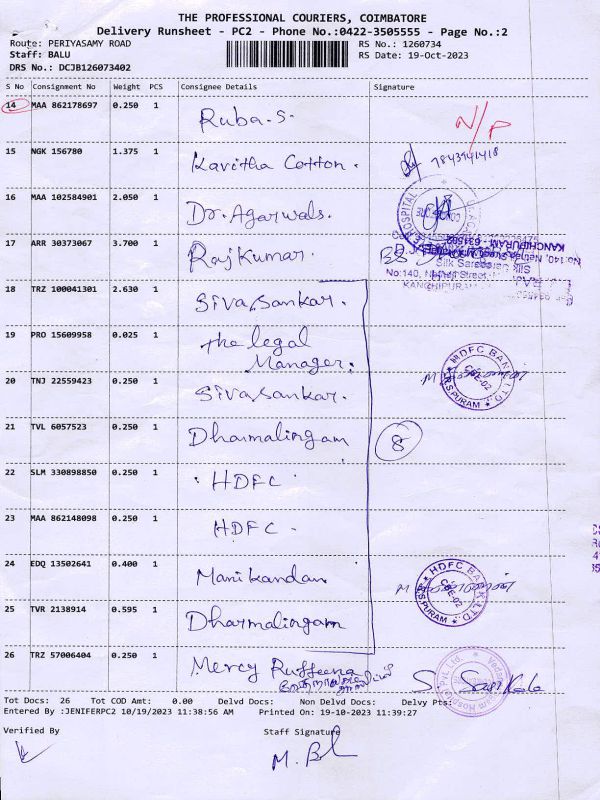 THE PROFESSIONAL COURIERS, COIMBATORE
Delivery Runsheet - PC2 - Phone No.:0422-3505555 - Page No.:2
Route: PERIYASAMY ROAD RS No.: 1260734
Staff: BALU RS Date: 19-Oct-2023
DRS No.: DCJB126073402
S No Consignment No Weight PCS Consignee Details Signature
14 MAA 862178697 0.250 1 Ruba.S. N/P
15 NGK 156780 1.375 1 Kavitha Cotton. 7843941418
16 MAA 102584901 2.050 1 Dr. Agarwals.
17 ARR 30373067 3.700 1 Rajkumar.
KANCHIPURAM - 631502
No:140,
18 TRZ 100041301 2.630 1 Siva Sankar.
19 PRO 15609958 0.025 1 The legal
Manager.
HDFC BANK LTD.
CBE-02
R.S.PURAM
20 TNJ 22559423 0.250 1 Siva Sankar.
21 TVL 6057523 0.250 1 Dharmalingam 8
22 SLM 330898850 0.250 1 HDFC
23 MAA 862148098 0.250 1 HDFC -
24 EDQ 13502641 0.400 1 Manikandan
HDFC BANK LTD.
CBE-02
R.S.PURAM
25 TVR 2138914 0.595 1 Dharmalingam
26 TRZ 57006404 0.250 1 Mercy Ruffeena
S. Sasikala
Tot Docs: 26 Tot COD Amt: 0.00 Delvd Docs: Non Delvd Docs: Delvy Pts:
Entered By :JENIFERPC2 10/19/2023 11:38:56 AM Printed On: 19-10-2023 11:39:27
Verified By Staff Signature